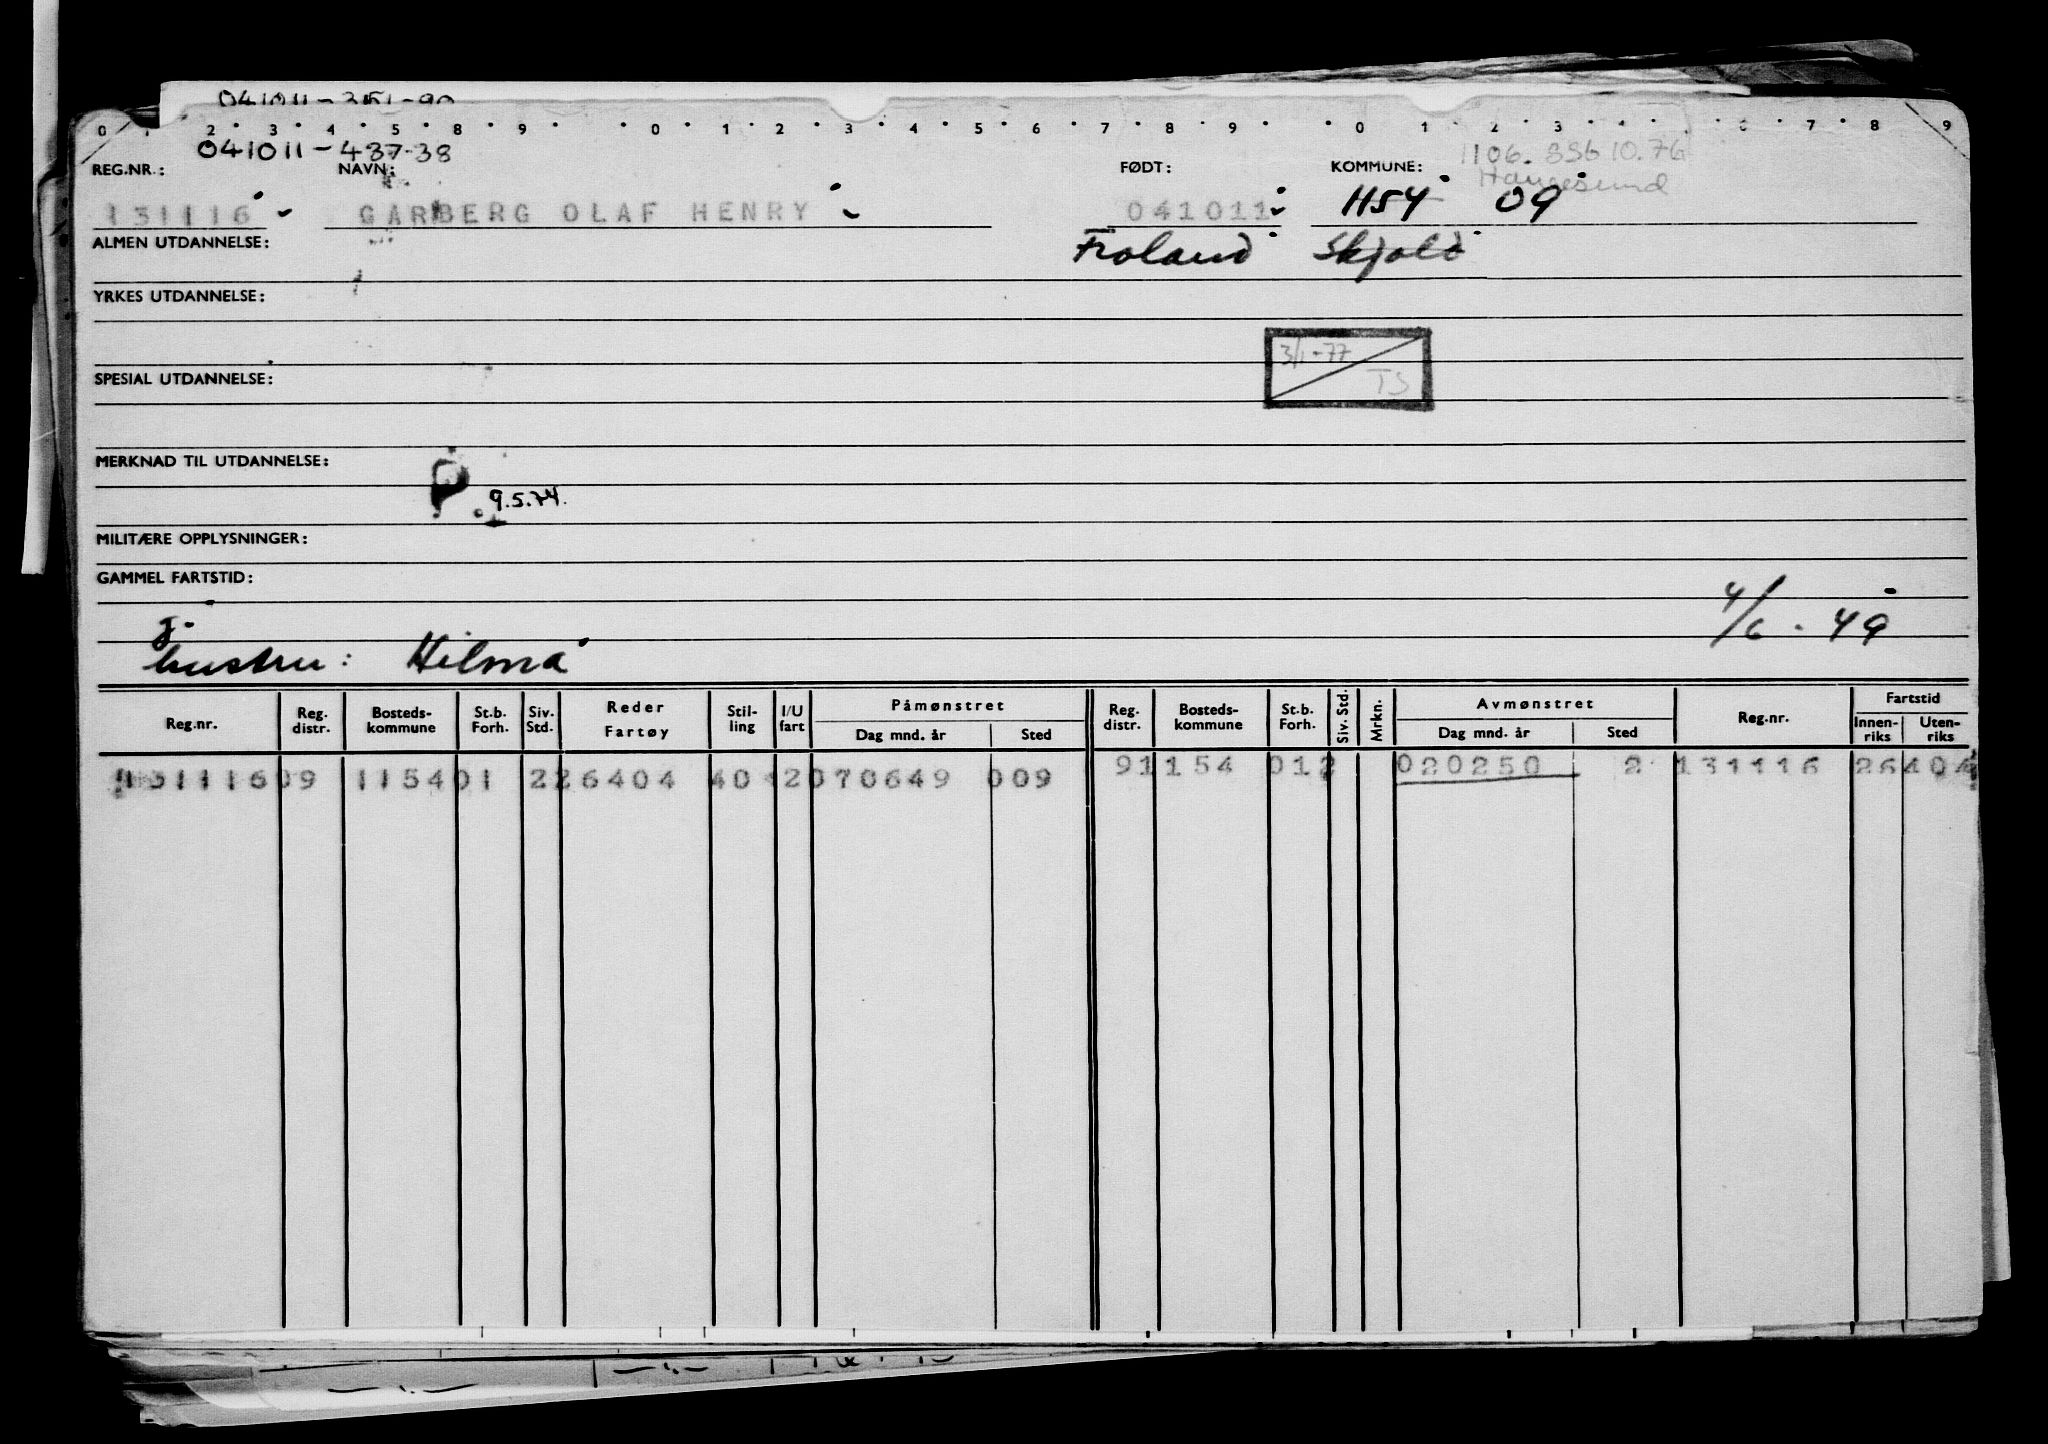 041011-437-38
0 1 2 3 4 5 8 9 0 1 2 3 4 5 6 7 8 9 0 1 2 3 4 6 7 8 9
REG.NR.: NAVN: FØDT: KOMMUNE: 1106. SSB 10.76
Haugesund
131116 GARBERG OLAF HENRY 041011 1154 09
ALMEN UTDANNELSE: Froland Skjold
YRKES UTDANNELSE:
3/1-77
TS
SPESIAL UTDANNELSE:
MERKNAD TIL UTDANNELSE:
P. 9.5.74.
MILITÆRE OPPLYSNINGER:
GAMMEL FARTSTID:
g. 4/6. 49
hustru: Hilma
Reg.nr. Reg. distr. Bosteds-kommune St.b. Forh. Siv. Std. Reder Fartøy Stil-ling I/U fart Påmønstret Dag mnd. år Sted Reg. distr. Bosteds-kommune St.b. Forh. Siv. Std. Mrkn. Avmønstret Dag mnd. år Sted Reg.nr. Fartstid Innen-riks Uten-riks
131116 09 1154 01 2 26404 40 2 070649 009 91 154 012 020250 2 131116 26404